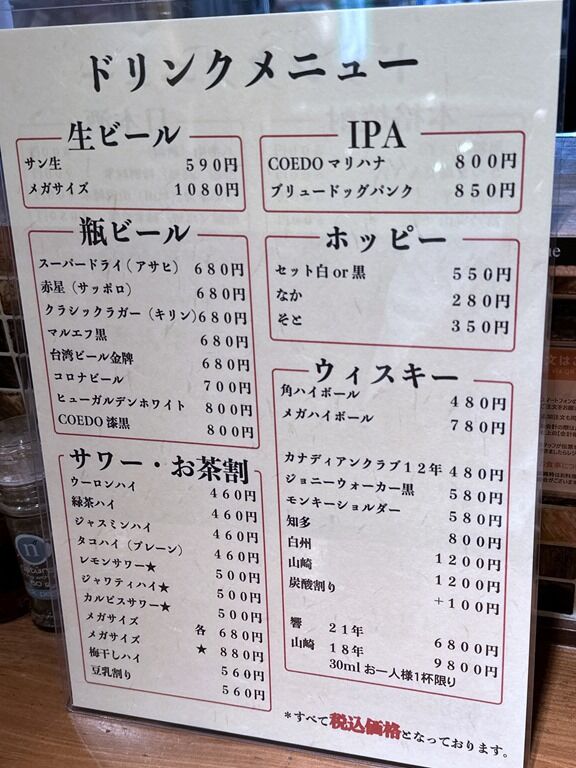 ドリンクメニュー
生ビール
サン生 590円
メガサイズ 1080円
IPA
COEDO マリハナ 800円
ブリュードッグパンク 850円
瓶ビール
スーパードライ（アサヒ） 680円
赤星（サッポロ） 680円
クラシックラガー（キリン） 680円
マルエフ黒 680円
台湾ビール金牌 680円
コロナビール 700円
ヒューガルデンホワイト 800円
COEDO 漆黒 800円
ホッピー
セット白 or 黒 550円
なか 280円
そと 350円
サワー・お茶割
ウーロンハイ 460円
緑茶ハイ 460円
ジャスミンハイ 460円
タコハイ（プレーン） 460円
レモンサワー★ 500円
ジャワティハイ★ 500円
カルピスサワー★ 500円
メガサイズ 各 680円
メガサイズ ★ 880円
梅干しハイ 560円
豆乳割り 560円
ウィスキー
角ハイボール 480円
メガハイボール 780円
カナディアンクラブ12年 480円
ジョニーウォーカー黒 580円
モンキーショルダー 580円
知多 800円
白州 1200円
山崎 1200円
炭酸割り +100円
響 21年 6800円
山崎 18年 9800円
30ml お一人様1杯限り
＊すべて税込価格となっております。